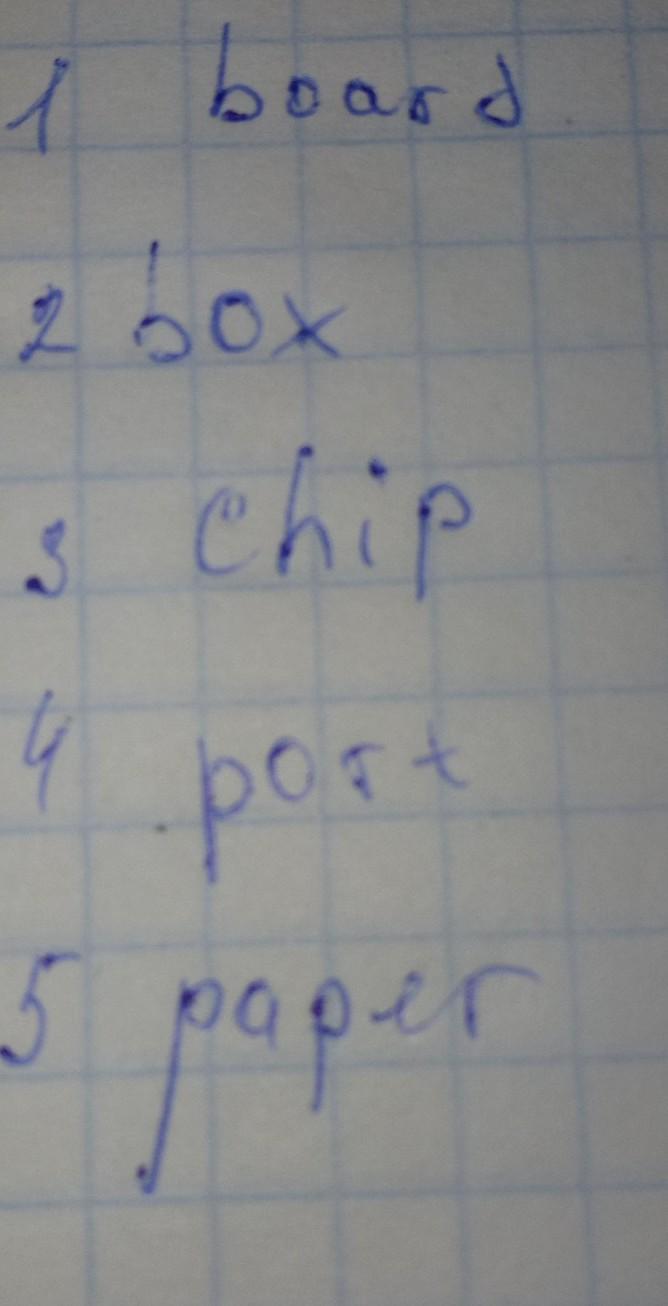 1 board
2 box
3 chip
4 port
5 paper